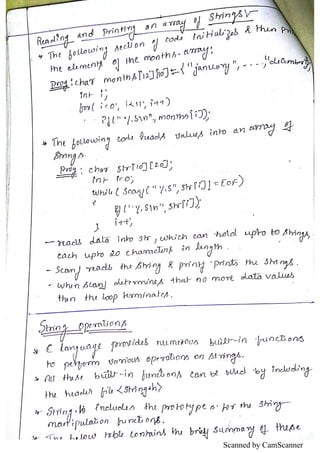 Reading and Printing an array of Strings
* The following section of code initializes & then
the elements of the months-array:
Prog: char months[12][10] = {"january", ----, "december
int i;
for( i=0; i<11; i++)
Pf("%s\n", months[i]);
* The following code reads values into an array of
Strings.
Prog: char Str[10][20];
int i=0;
while ( Scanf("%s", Str[i]) = EOF)
{
Pf("%s\n", Str[i]);
i++;
}
— reads data into str, which can hold upto to Strings,
each upto 20 characters in length.
- Scanf reads the string & printf prints the Strings.
- when Scanf determines that no more data values
then the loop terminates.
String Operations
* C language provides numerous built-in functions
to perform various operations on strings.
* All these built-in functions can be used by including
the header file <String.h>
* String.h includes the prototypes for the String
manipulation functions.
* The below table contains the brief Summary of these
Scanned by CamScanner